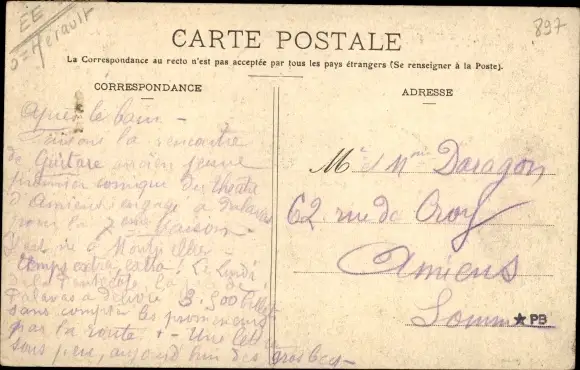 EE
Hérault
897
CARTE POSTALE
La Correspondance au recto n'est pas acceptée par tous les pays étrangers (Se renseigner à la Poste).
CORRESPONDANCE
ADRESSE
Après le bain -
la rencontre
de Guitare ancien jeune
premier comique du théâtre
d'Amiens engagé à Palavas
pour la saison -
à Montpellier
Temps extra extra! Le Lundi
de la Pentecôte la
Palavas a délivré 3.500 billets
sans compter les promeneurs
par la route + - Une lettre
sous peu, aujourd'hui des gros becs -
Mr et Mme Daragon
62 rue de Croy
Amiens
Somme
★PB